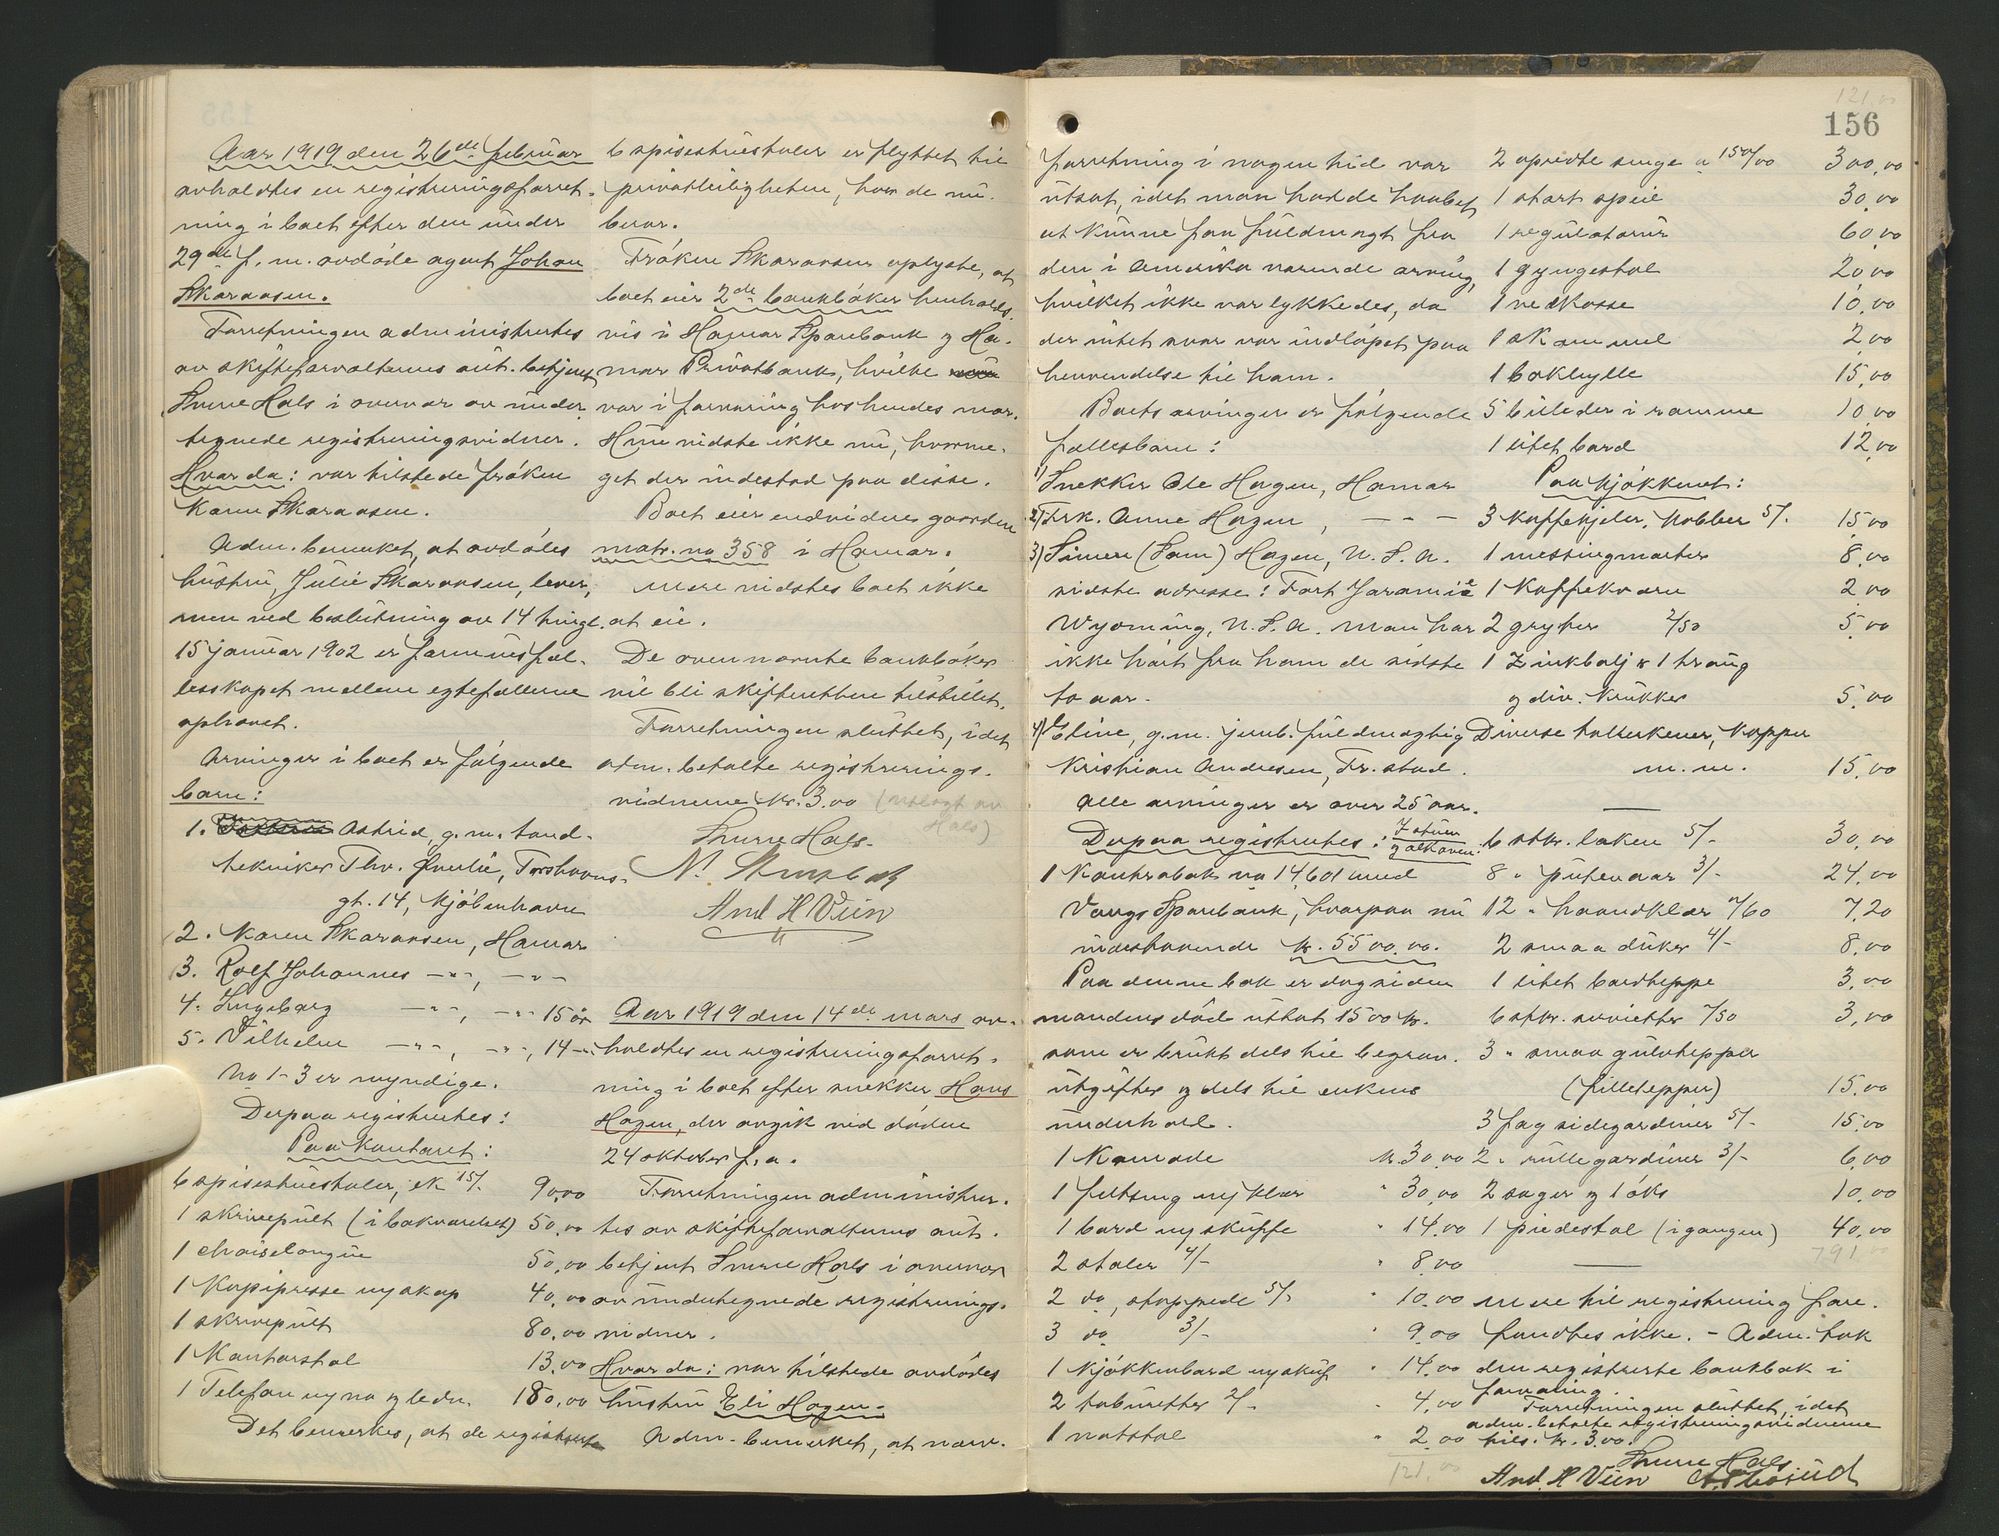 Aar 1919 den 26de februar
avholdtes en registreringsforret-
ning i boet efter den under
29de f. m. avdøde agent Johan
Skaraasen.
Forretningen administrertes
av skifteforvalterens aut. betjent
Snurre Hals i overvær av under-
tegnede registreringsvidner.
Hvor da: var tilstede frøken
Karen Skaraasen.
Adm. bemerket, at avdødes
hustru, Julie Skaraasen, lever,
men ved beslutning av 14 tingl.
15 januar 1902 er formuesfæl-
lesskapet mellem egtefællerne
ophævet.
Arvinger i boet er følgende
barn:
1. Astrid, g. m. tand-
tekniker Thv. Øverlie, Torshavns-
gt. 14, Kjøbenhavn
2. Karen Skaraasen, Hamar
3. Rolf Johannes -"-, -"-
4. Ingeborg -"-, -"- 15 år
5. Vilhelm -"-, -"-, 14 -"-
No 1-3 er myndige.
Derpaa registrertes:
Paa kontoret:
6 spisestuestoler, ek 15/- 90,00
1 skrivepult (i bakværelset) 50,00
1 chaiselongue 50,00
1 Kopipresse m/skap 40,00
1 skrivepult 80,00
1 Kontorstol 13,00
1 Telefon m/no og ledn. 180,00
Det bemerkes, at de registrerte
6 spisestuestoler er flyttet til
privatleiligheten, hvor de nu
beror.
Frøken Skaraasen oplyste, at
boet eier 2de bankbøker henholds-
vis i Hamar Sparebank og Ha-
mar Privatbank, hvilke
var i forvaring hos hendes mor.
Hun vidste ikke nu, hvorme-
get der indestod paa disse.
Boet eier endvidere gaarden
matr. no 358 i Hamar.
Mere vidstes boet ikke
at eie.
De ovennævnte bankbøker
vil bli skifteretten tilstillet.
Forretningen sluttet, idet
adm. betalte registrerings-
vidnerne kr. 3.00 (utlagt av
Hals)
Snurre Hals.
And. H Veien
Aar 1919 den 14de mars av-
holdtes en registreringsforret-
ning i boet efter snekker Hans
Hagen, der avgik ved døden
24 oktober f. a.
Forretningen administrer-
tes av skifteforvalterens aut.
betjent Snurre Hals i overvær
av undertegnede registrerings-
vidner.
Hvor da: var tilstede avdødes
hustru Eli Hagen.
Adm. bemerket, at nærv.
121,00
156
forretning i nogen tid var
utsat, idet man hadde haabet
at kunne faa fuldmagt fra
den i Amerika værende arving,
hvilket ikke var lykkedes, da
der intet svar var indløpet paa
henvendelse til ham.
Boets arvinger er følgende
fællesbarn:
1) Snekker Ole Hagen, Hamar
2) Frk. Anne Hagen, - - -
3) Simen (Sam) Hagen, U. S. A.
sidste adresse: Fort Laramie
Wyoming, U. S. A. Man har
ikke hørt fra ham de sidste
to aar.
4) Eline, g. m. jernb. fuldmægtig
Kristian Andresen, Fr.stad.
Alle arvinger er over 25 aar.
Derpaa registrertes: I stuen
og alkoven:
1 Kontrabok no 14601 med
Vangs Sparebank, hvorpaa nu
indestaaende kr. 5500.00.
Paa denne bok er dog siden
mandens død uttat 1500 kr.
som er brukt dels til begrav.
utgifter og dels til enkens
underhold.
1 Komode kr. 30,00
1 feltseng m/klær " 30,00
1 bord m/skuffe " 14,00
2 stoler 4/- " 8,00
2 do, stoppede 5/- " 10,00
3 do 3/- " 9,00
1 kjøkkenbord m/skuf " 14,00
2 taburetter 2/- " 4,00
1 natstol " 2,00
121,00
2 opredte senge a 150/00 300,00
1 stort speil 30,00
1 regulatorur 60,00
1 gyngestol 20,00
1 vedkasse 10,00
1 skammel 2,00
1 bokhylle 15,00
5 billeder i ramme 10,00
1 litet bord 12,00
Paa kjøkkenet:
3 kaffekjeler, kobber 5/- 15,00
1 messingmorter 8,00
1 Kaffekvern 2,00
2 gryter 2/50 5,00
1 Zinkbalje 1 traug
og div. krukker 5,00
Diverse tallerkener, kopper
m. m. 15,00
6 stkr. laken 5/- 30,00
8 " putevaar 3/- 24,00
12 " haandklær "/60 7,20
2 smaa duker 4/- 8,00
1 litet bordteppe 3,00
6 stkr. servietter "/50 3,00
3 " smaa gulvtepper
(filletepper) 15,00
3 fag sidegardiner 5/- 15,00
2 " rullegardiner 3/- 6,00
2 sager og 1 øks 10,00
1 piedestal (i gangen) 40,00
791,00
Mere til registrering fore-
fandtes ikke. - Adm. tok
den registrerte bankbok i
forvaring.
Forretningen sluttet, idet
adm. betalte registreringsvidnerne
tils. kr. 3.00.
Snurre Hals
And. H Veien